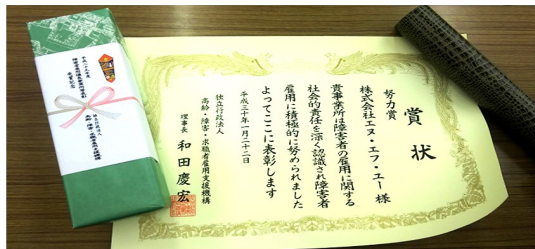 賞状
努力賞
株式会社エヌ・エフ・エー 様
貴事業所は障害者の雇用に関する
社会的責任を深く認識され障害者
雇用に積極的に努められました
よってここに表彰します
平成三十年一月二十二日
独立行政法人
高齢・障害・求職者雇用支援機構
理事長 和田慶宏